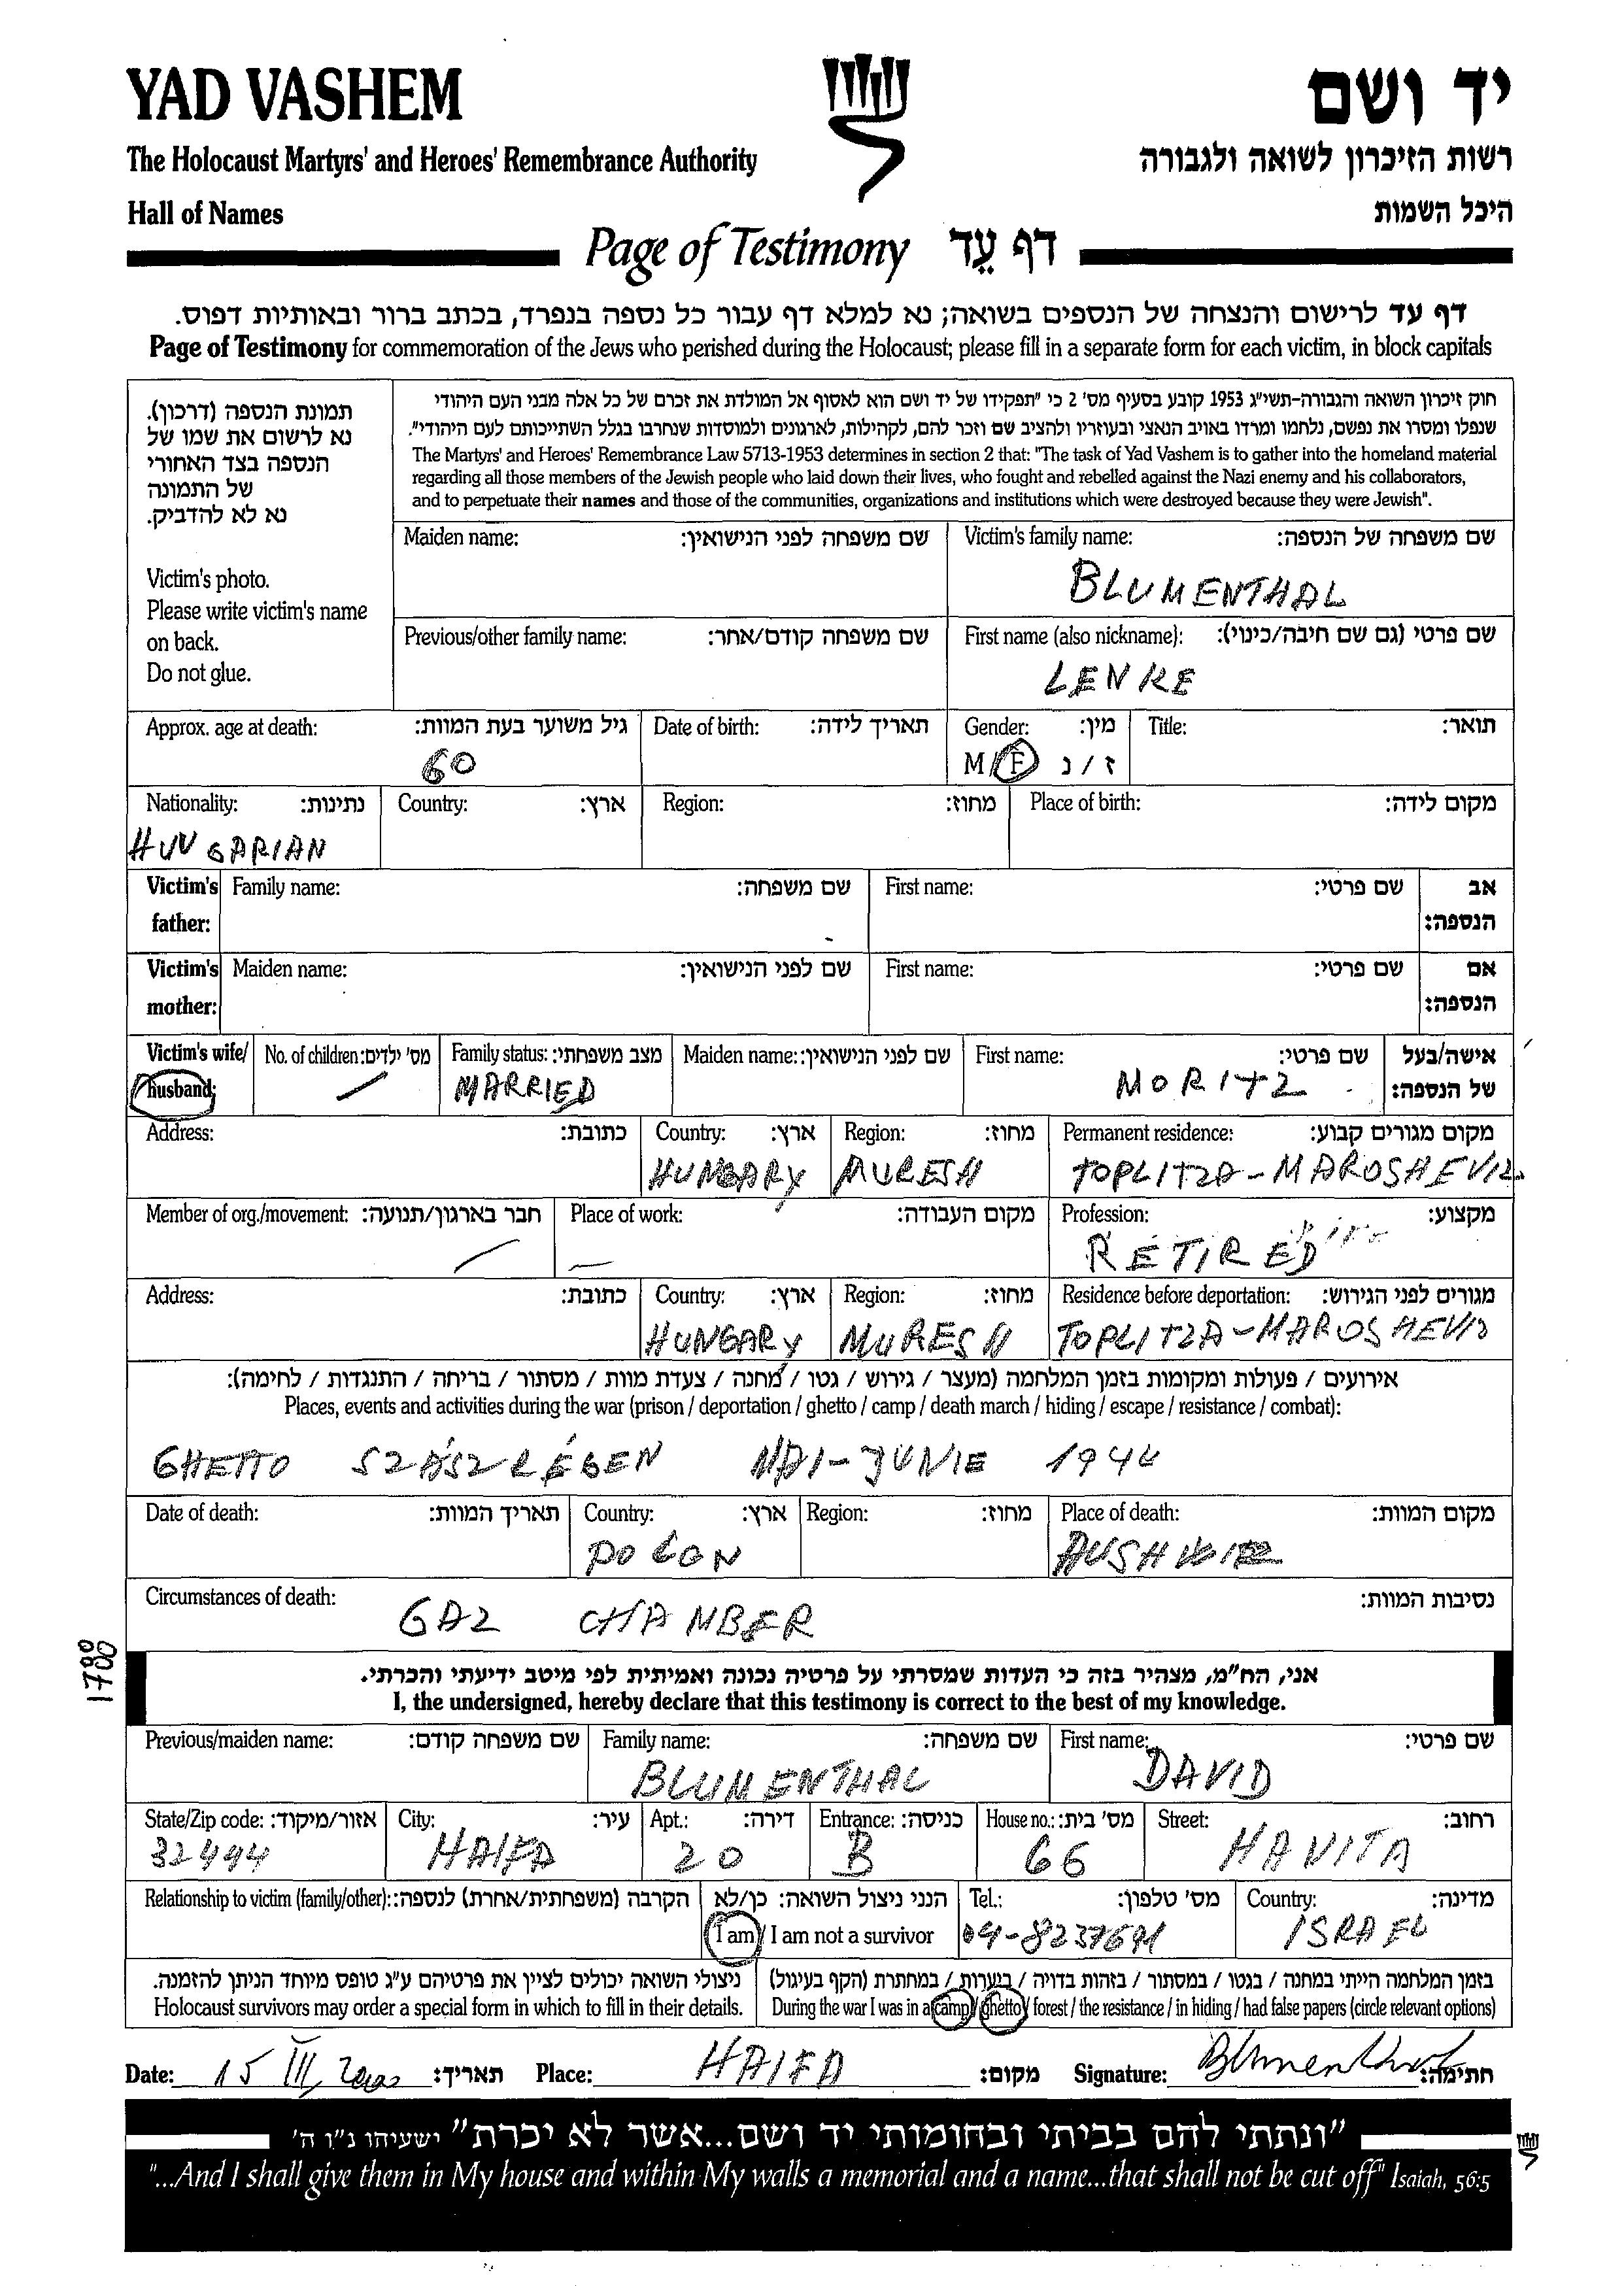 YAD VASHEM
יד ושם
The Holocaust Martyrs' and Heroes' Remembrance Authority
רשות הזיכרון לשואה ולגבורה
Hall of Names
היכל השמות
Page of Testimony דף עֵד
דף עד לרישום והנצחה של הנספים בשואה; נא למלא דף עבור כל נספה בנפרד, בכתב ברור ובאותיות דפוס.
Page of Testimony for commemoration of the Jews who perished during the Holocaust; please fill in a separate form for each victim, in block capitals
תמונת הנספה (דרכון).
נא לרשום את שמו של
הנספה בצד האחורי
של התמונה
נא לא להדביק.
Victim's photo.
Please write victim's name
on back.
Do not glue.
חוק זיכרון השואה והגבורה-תשי"ג 1953 קובע בסעיף מס' 2 כי "תפקידו של יד ושם הוא לאסוף אל המולדת את זכרם של כל אלה מבני העם היהודי
שנפלו ומסרו את נפשם, נלחמו ומרדו באויב הנאצי ובעוזריו ולהציב שם וזכר להם, לקהילות, לארגונים ולמוסדות שנחרבו בגלל השתייכותם לעם היהודי".
The Martyrs' and Heroes' Remembrance Law 5713-1953 determines in section 2 that: "The task of Yad Vashem is to gather into the homeland material
regarding all those members of the Jewish people who laid down their lives, who fought and rebelled against the Nazi enemy and his collaborators,
and to perpetuate their names and those of the communities, organizations and institutions which were destroyed because they were Jewish".
Maiden name: שם משפחה לפני הנישואין: Victim's family name: שם משפחה של הנספה:
BLUMENTHAL
Previous/other family name: שם משפחה קודם/אחר: First name (also nickname): שם פרטי (גם שם חיבה/כינוי):
LENKE
Approx. age at death: גיל משוער בעת המוות: Date of birth: תאריך לידה: Gender: מין: Title: תואר:
60 M/F ז/נ
Nationality: נתינות: Country: ארץ: Region: מחוז: Place of birth: מקום לידה:
HUNGARIAN
Victim's father: Family name: שם משפחה: First name: שם פרטי: אב הנספה:
Victim's mother: Maiden name: שם לפני הנישואין: First name: שם פרטי: אם הנספה:
Victim's wife/ husband: No. of children: מס' ילדים: Family status: מצב משפחתי: Maiden name: שם לפני הנישואין: First name: שם פרטי: אישה/בעל של הנספה:
MARRIED MORITZ
Address: כתובת: Country: ארץ: Region: מחוז: Permanent residence: מקום מגורים קבוע:
HUNGARY MURESH TOPLITZA-MAROSHEVIZ
Member of org./movement: חבר בארגון/תנועה: Place of work: מקום העבודה: Profession: מקצוע:
RETIRED
Address: כתובת: Country: ארץ: Region: מחוז: Residence before deportation: מגורים לפני הגירוש:
HUNGARY MURESH TOPLITZA-MAROSHEVIZ
אירועים / פעולות ומקומות בזמן המלחמה (מעצר / גירוש / גטו / מחנה / צעדת מוות / מסתור / בריחה / התנגדות / לחימה):
Places, events and activities during the war (prison / deportation / ghetto / camp / death march / hiding / escape / resistance / combat):
GHETTO SZÁSZRÉGEN MAI-JUNIE 1944
Date of death: תאריך המוות: Country: ארץ: Region: מחוז: Place of death: מקום המוות:
POLON AUSHWITZ
Circumstances of death: נסיבות המוות:
GAZ CHAMBER
1700
אני, הח"מ, מצהיר בזה כי העדות שמסרתי על פרטיה נכונה ואמיתית לפי מיטב ידיעתי והכרתי.
I, the undersigned, hereby declare that this testimony is correct to the best of my knowledge.
Previous/maiden name: שם משפחה קודם: Family name: שם משפחה: First name: שם פרטי:
BLUMENTHAL DAVID
State/Zip code: אזור/מיקוד: City: עיר: Apt.: דירה: Entrance: כניסה: House no.: מס' בית: Street: רחוב:
32494 HAIFA 20 B 66 HAVITA
Relationship to victim (family/other): הקרבה (משפחתית/אחרת) לנספה: הנני ניצול השואה: כן/לא Tel.: מס' טלפון: Country: מדינה:
I am / I am not a survivor 04-8237691 ISRAEL
ניצולי השואה יכולים לציין את פרטיהם ע"ג טופס מיוחד הניתן להזמנה. בזמן המלחמה הייתי במחנה / בגטו / במסתור / בזהות בדויה / ביערות / במחתרת (הקף בעיגול)
Holocaust survivors may order a special form in which to fill in their details. During the war I was in a camp / ghetto / forest / the resistance / in hiding / had false papers (circle relevant options)
Date: 15 III, 2000 תאריך: Place: HAIFA מקום: Signature: Blumenthal חתימה:
"ונתתי להם בביתי ובחומותי יד ושם...אשר לא יכרת" ישעיהו נ"ו ה'
"...And I shall give them in My house and within My walls a memorial and a name...that shall not be cut off" Isaiah, 56:5